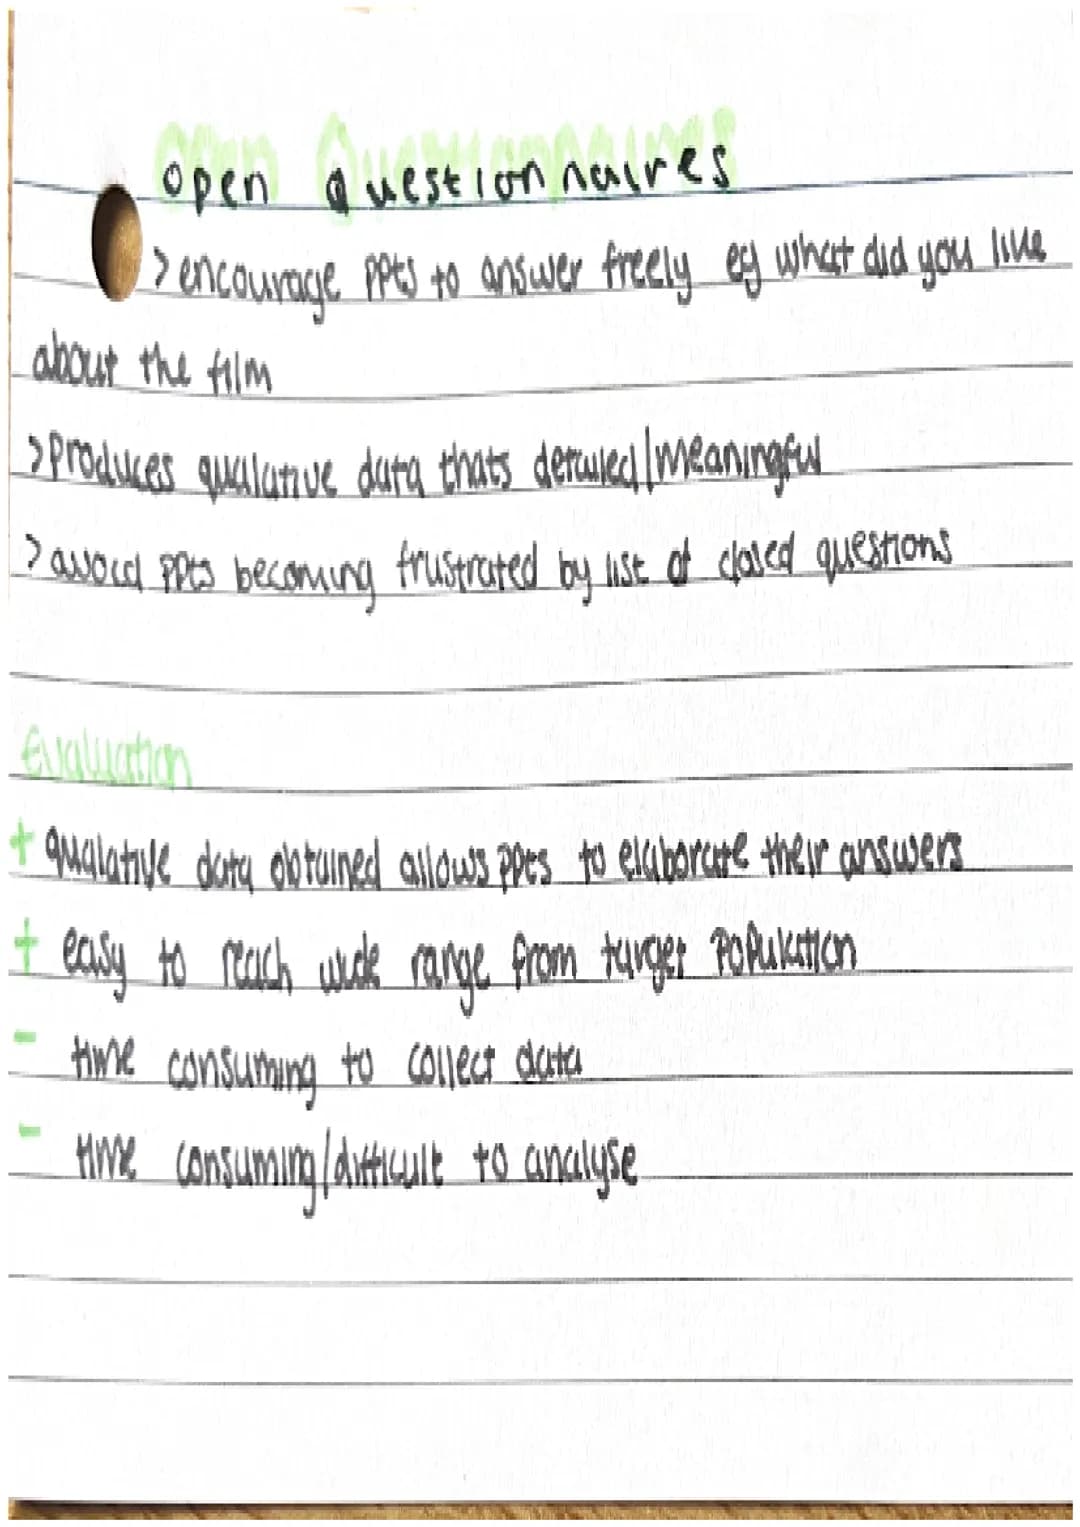 Open Questionnaires
> encourage ppts to answer freely eg what did you like
about the film
> Produces qualative data thats detailed/meaningful
> avoid ppts becoming frustrated by list of closed questions
Evaluation
+ qualative data obtained allows ppts to elaborate their answers
+ easy to reach wide range from target population
- time consuming to collect data
- time consuming/difficult to analyse